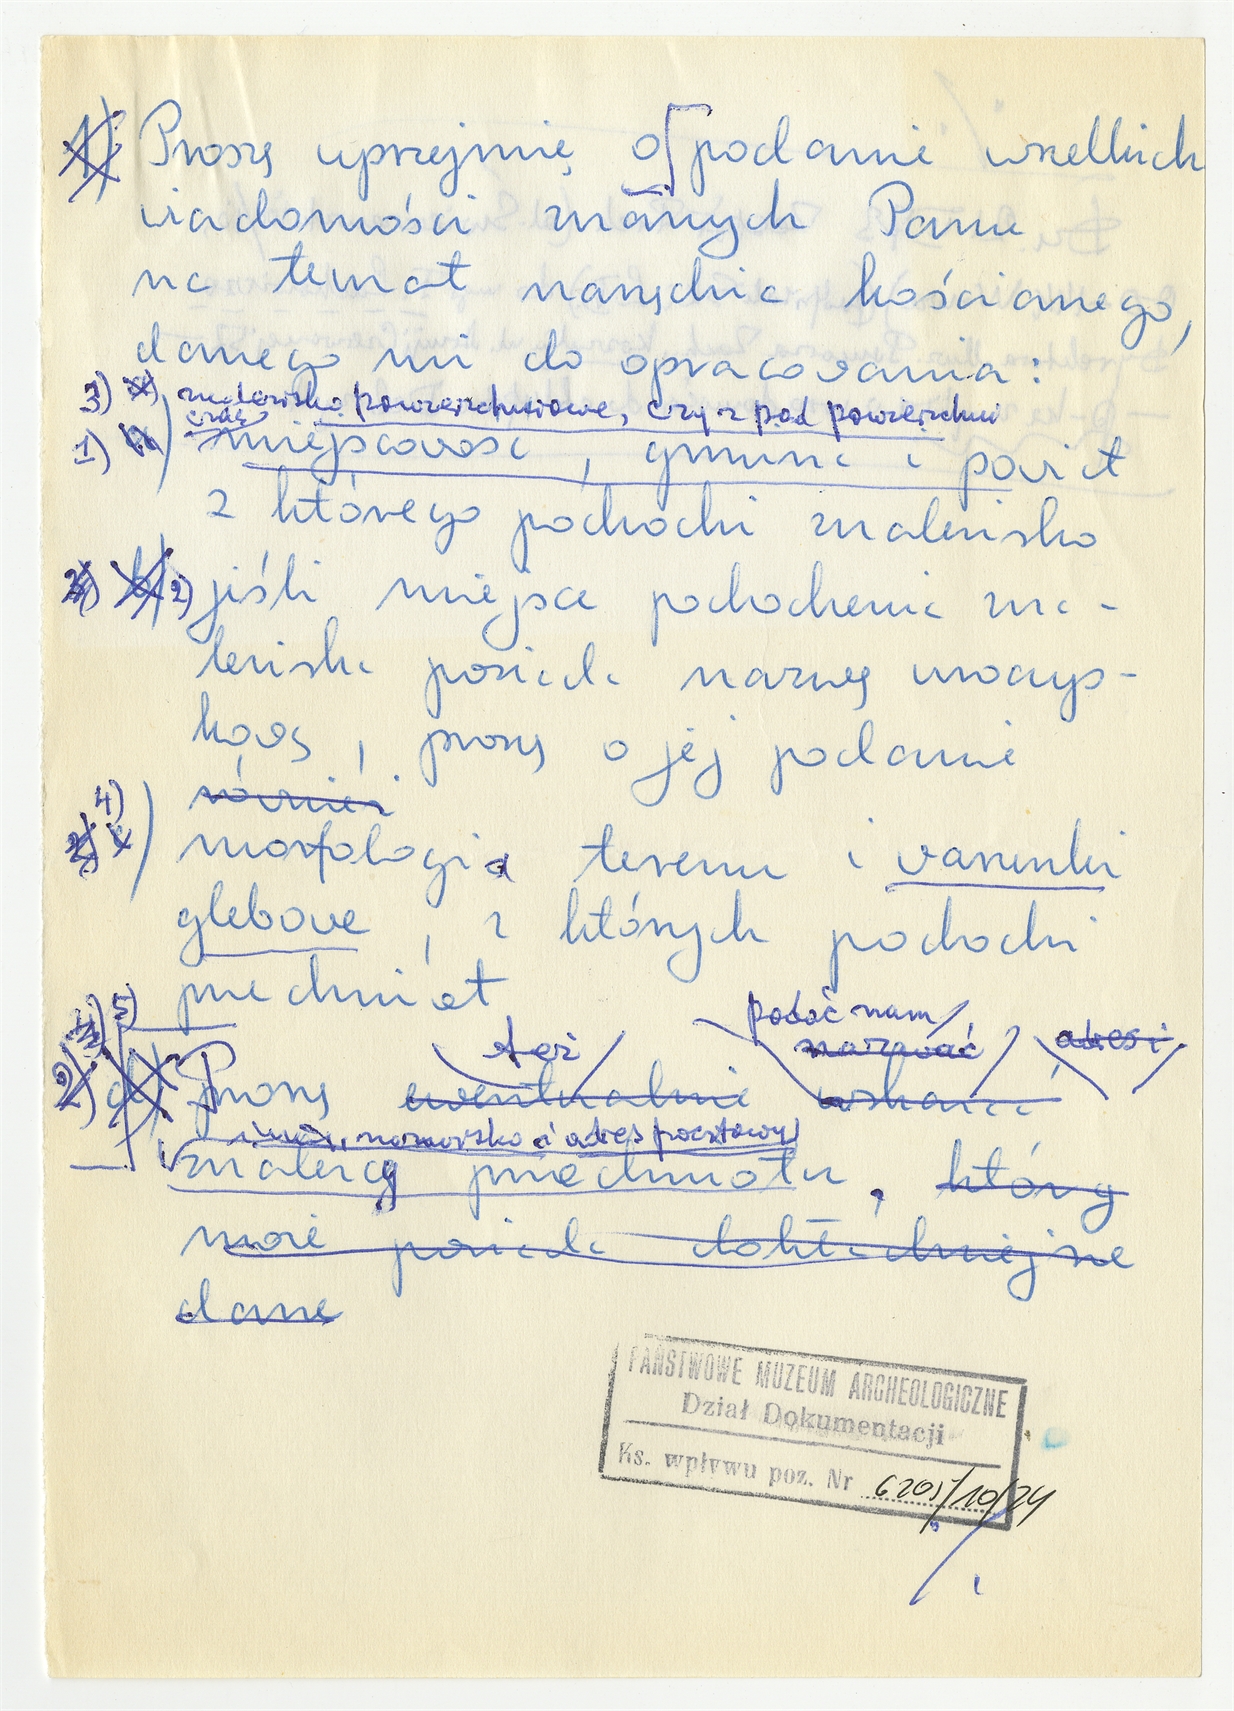 1) Proszę uprzejmię o podanie wszelkich
wiadomości znanych Panu
na temat narzędzia kościanego,
danego mi do opracowania:
3) znalezisko powierzchniowe, czy z pod powierzchni
oraz
1) miejscowość, gmina i powiat
z którego pochodzi znalezisko
2) jeśli miejsce pochodzenia zna-
leziska posiada nazwę uroczys-
kową, proszę o jej podanie
również
4) morfologia terenu i warunki
glebowe, z których pochodzi
przedmiot
5)
podać nam
też nazwać adres i
2) d) Proszę ewentualnie wskazać
imię, nazwisko i adres pocztowy
znalazcy przedmiotu, który
może posiada dokładniejsze
dane
PAŃSTWOWE MUZEUM ARCHEOLOGICZNE
Dział Dokumentacji
Ks. wpływu poz. Nr 6205/10/24